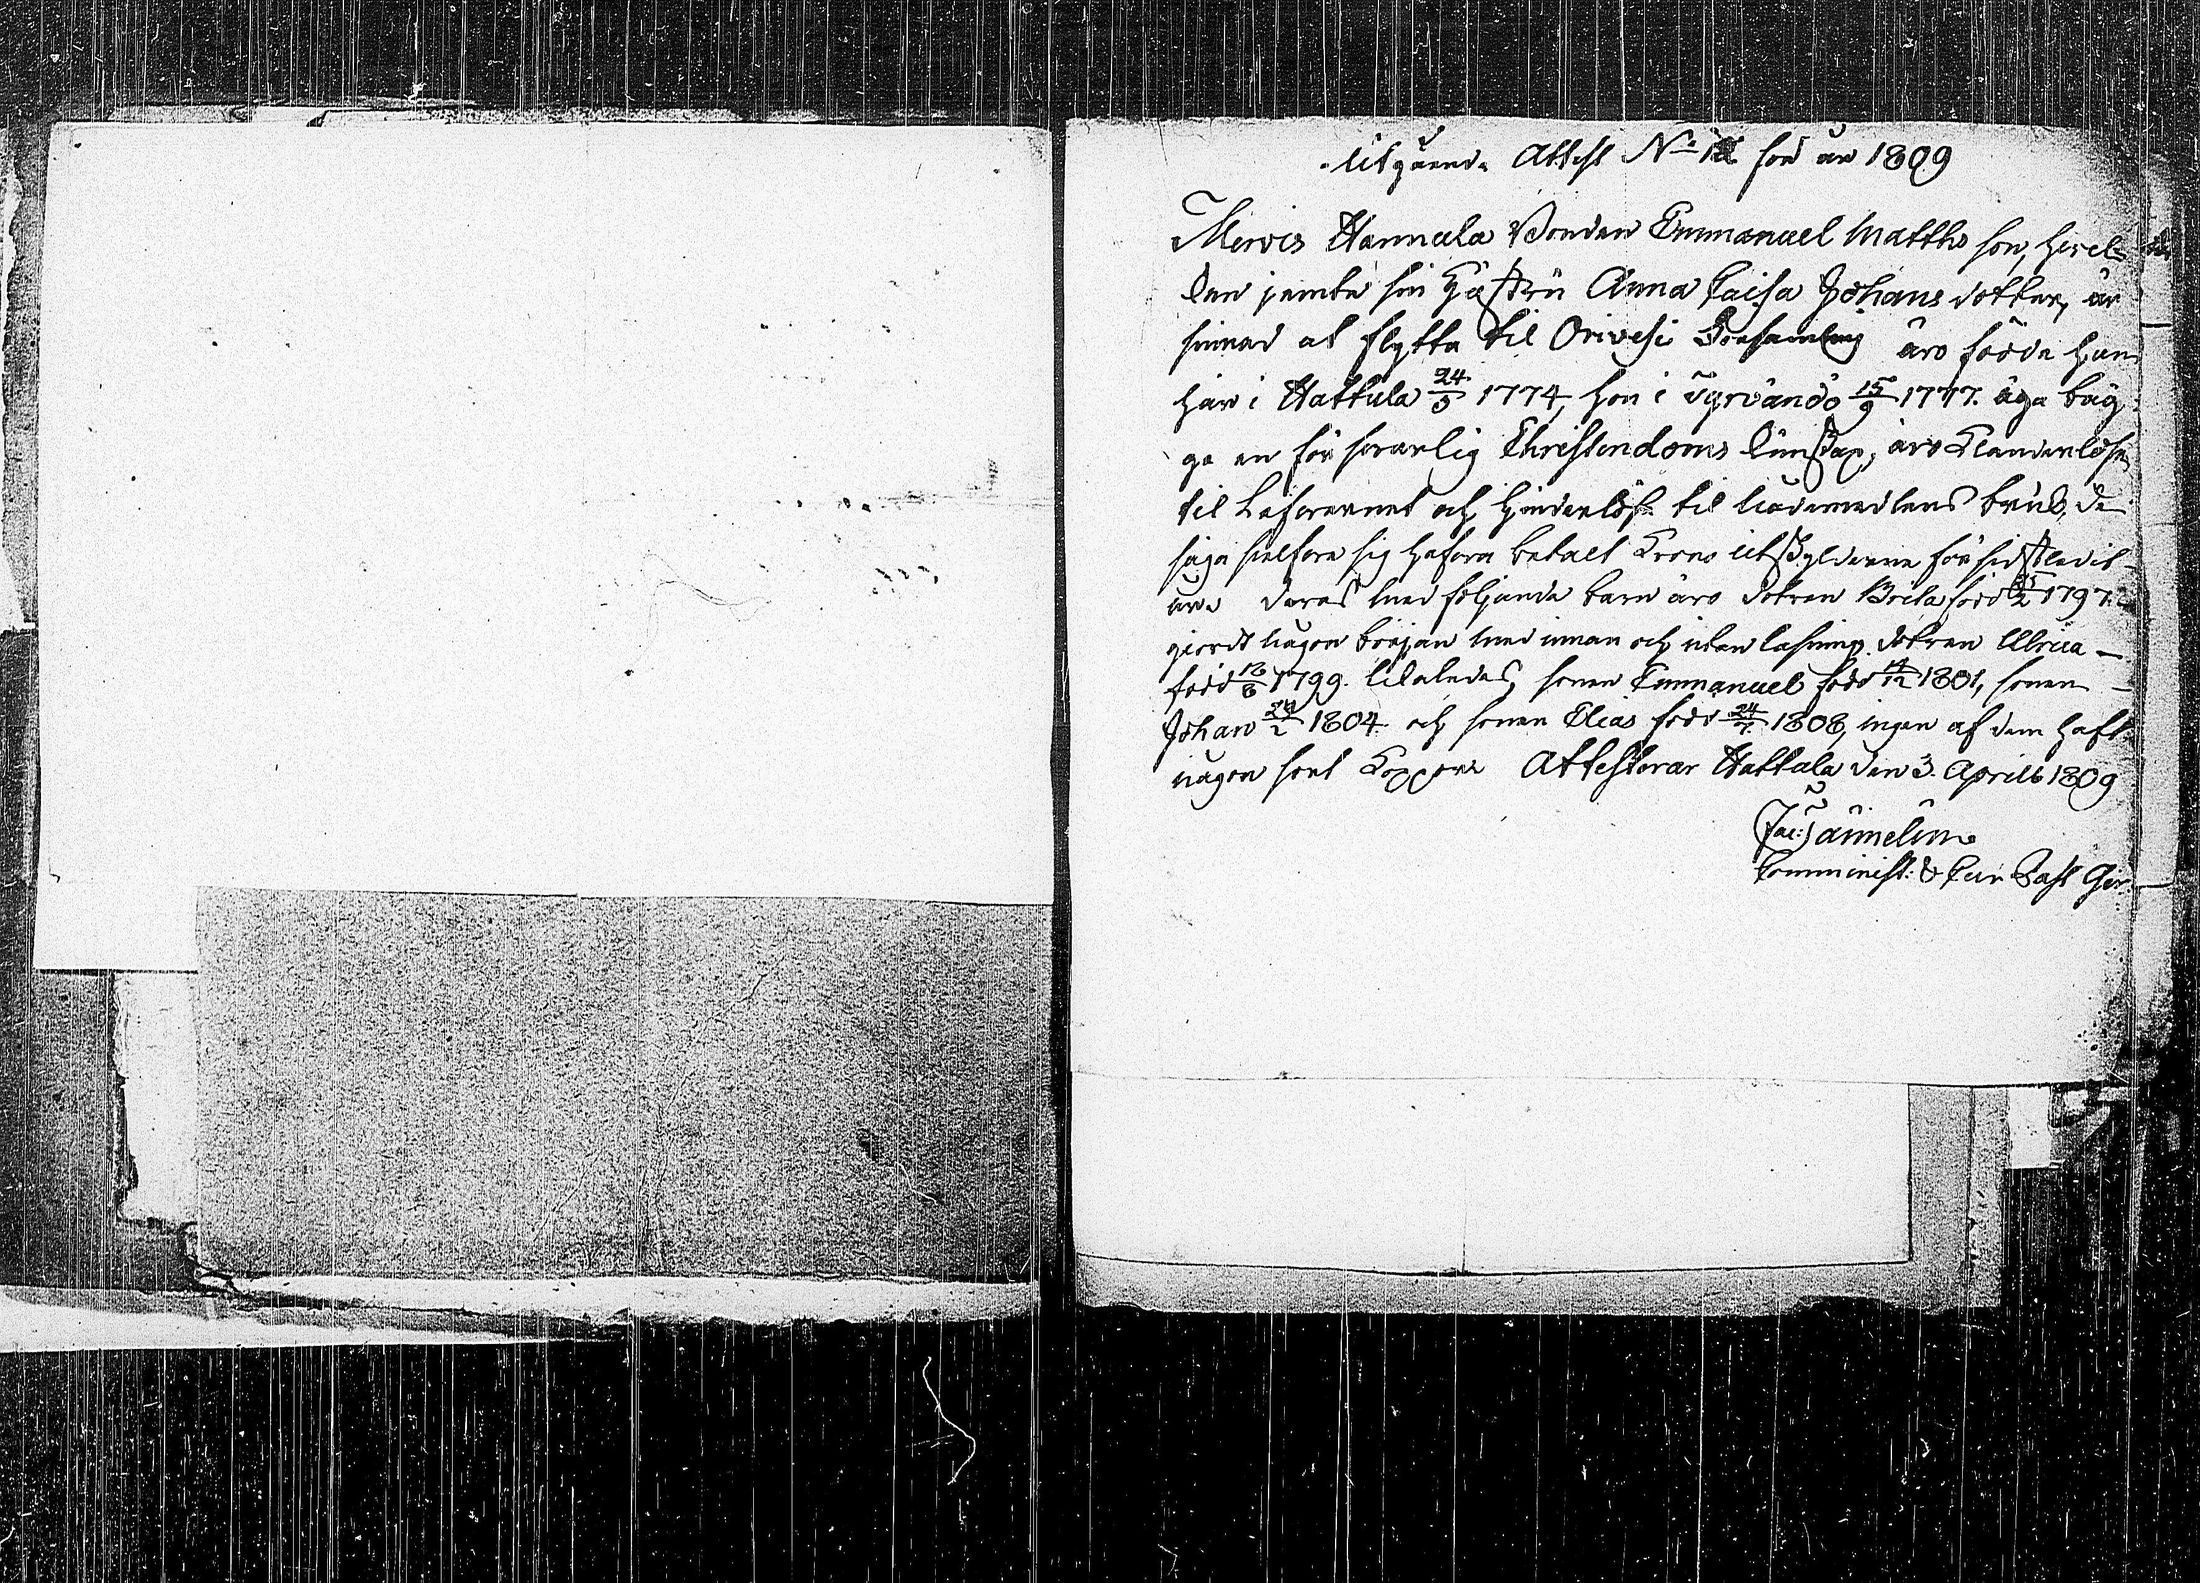 Utgående Attest No 12 för år 1809
Mervis Hannula Bonden Emmanuel Matths son, hvil-
ken jemte sin Hustru Anna Caisa Johans dotter, är
sinnad at flytta til Orivesi Församling äro födde han
här i Hattula 24/5 1774, hon i Tyrvändö 15/9 1777. äga bäg-
ge en försvarlig Christendoms kunskap, äro klanderlöse
til Lefvernet och hinderlöse til nådemedlens bruk, de
säga sielfve sig hafva betalt Krono utskylderne för sidstledit
år. deras medföljande barn äro dotren Brita född 25/2 1797.
giordt någon början med innan och utan läsning. dotren Ulrica
född 18/8 1799. likaledes, sonen Emmanuel född 14/12 1801, sonen
Johan 24/2 1804. och sonen Elias född 24/7 1808, ingen af dem haft
någon sort Koppor. Attesterar Hattula den 3. Aprill 1809
Jac:
Comminist: &